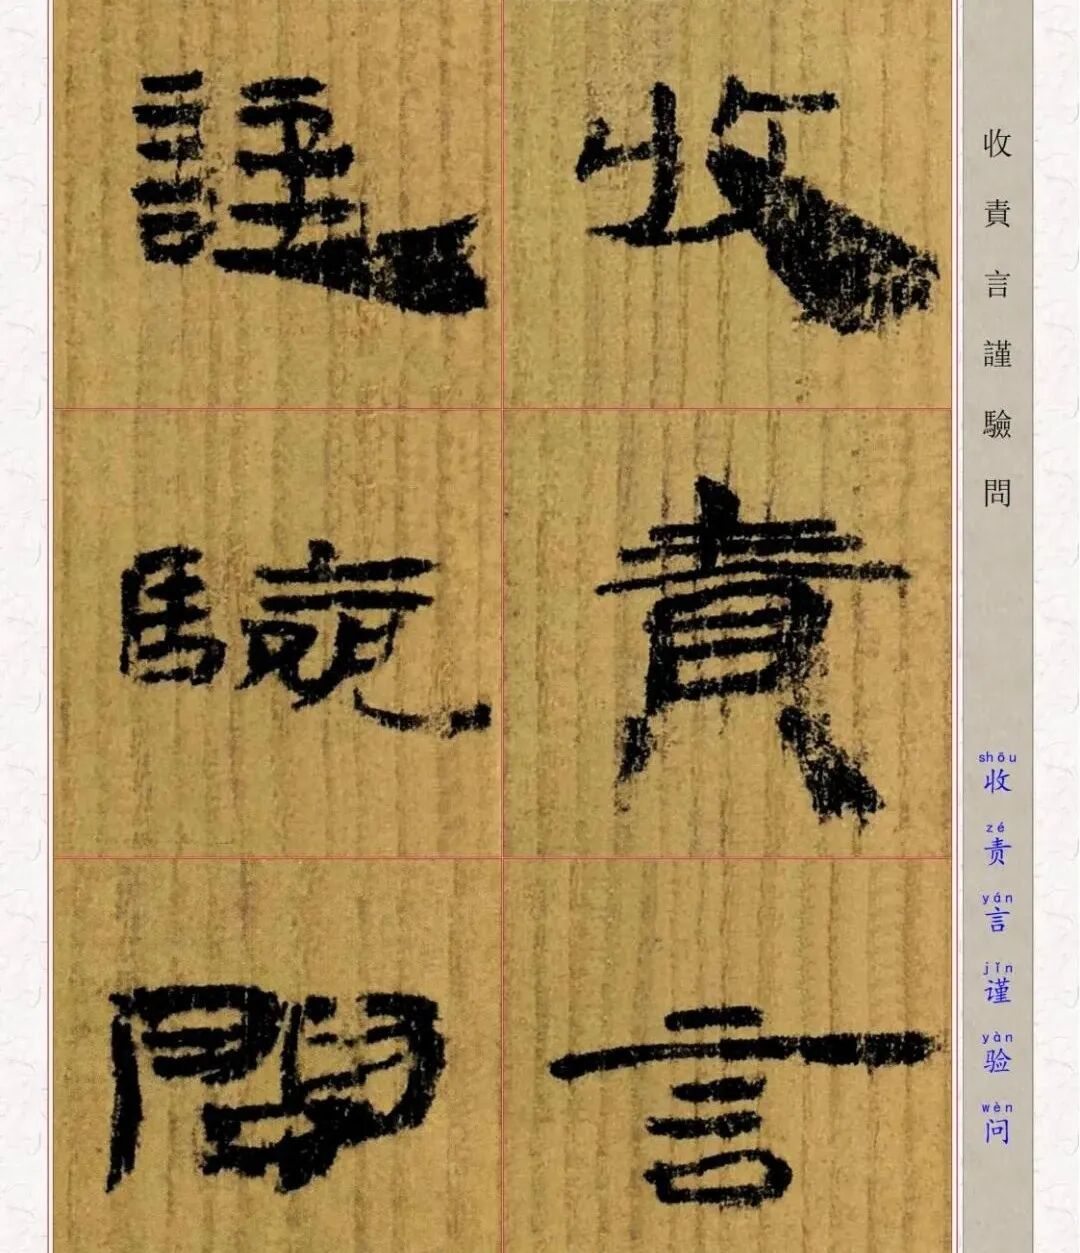 收責言
謹驗問
收責言謹驗問
shōu zé yán jǐn yàn wèn
收责言谨验问